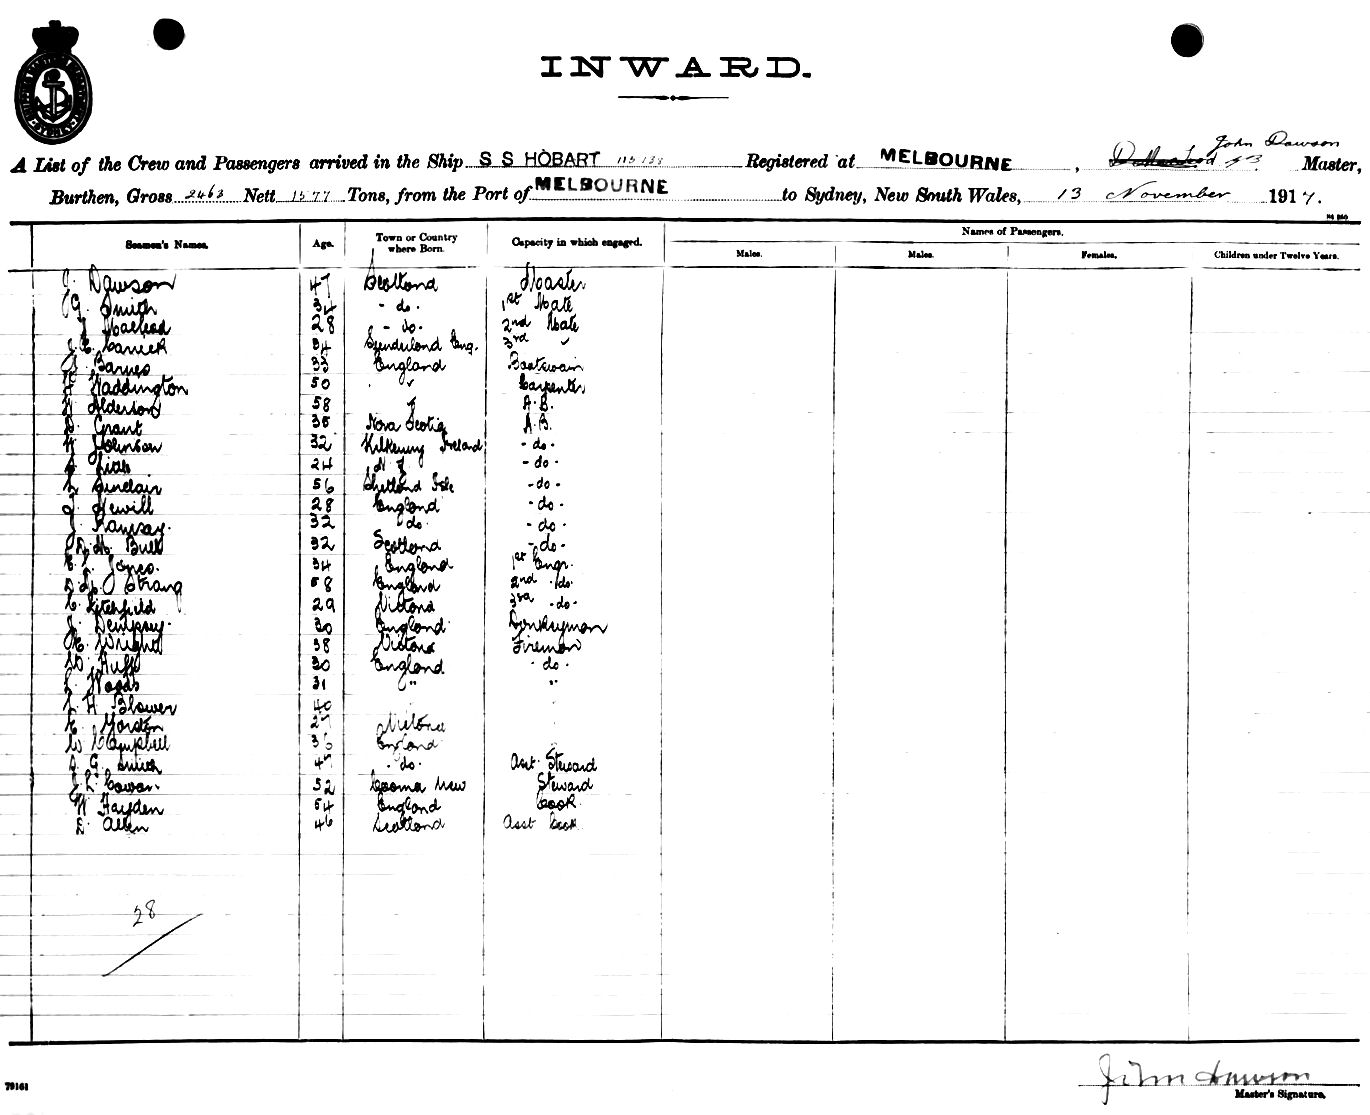 INWARD.
John Dawson
A List of the Crew and Passengers arrived in the Ship S S HOBART Registered at MELBOURNE, Master,
Burthen, Gross 2463 Nett 1577 Tons, from the Port of MELBOURNE to Sydney, New South Wales, 13 November 1917.
Seamen's Names. Age. Town or Country where Born. Capacity in which engaged. Names of Passengers.
Males. Males. Females. Children under Twelve Years.
J. Dawson 47 Scotland Master
J G. Smith 34 - do - 1st Mate
J. Macleod 28 - do - 2nd Mate
34 Sunderland Eng. 3rd "
Barnes 33 England Boatswain
Waddington 50 " Carpenter
Alderson 58 " A.B.
D. Grant 35 Nova Scotia A.B.
W Johnson 32 Kilkenny Ireland - do -
24 N Z - do -
Sinclair 56 Shetland Isle - do -
J. Hewill 28 England - do -
J. Ramsay. 32 - do - - do -
Bull 32 Scotland - do -
Jones. 34 England 1st Engr.
Strang 58 England 2nd - do -
C. Litchfield 29 Victoria 3rd - do -
J. Dempsey. 30 England Donkeyman
E. Wright 38 Victoria Fireman
W. Huff 30 England - do -
Woods 31 " "
H Blower 40
E. Gordon 27 Victoria
W Campbell 36 England
G. Smith 47 - do - Asst Steward
Cowan. 52 Cooma NSW Steward
W Hayden 54 England Cook
E. Allen 46 Scotland Asst Cook
28
John Dawson
Master's Signature.
79161